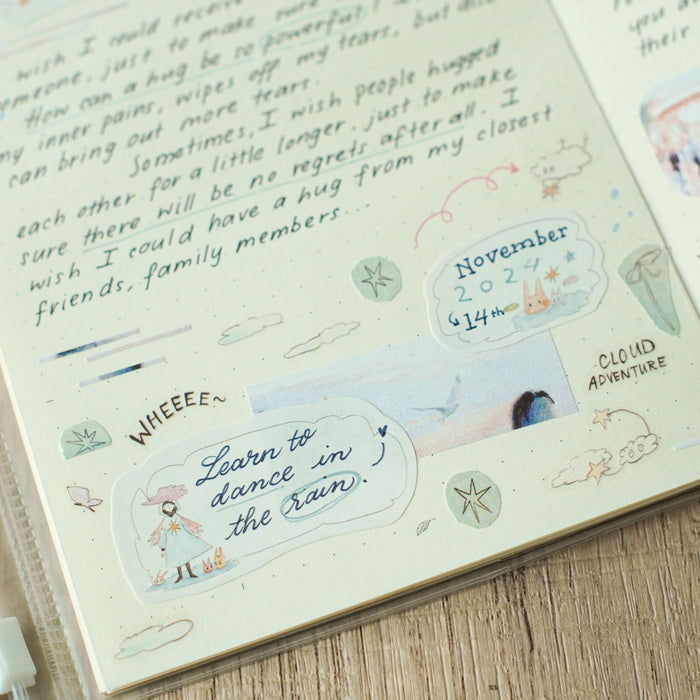 wish I could receive
someone, just to make sure
How can a hug be so powerful?
my inner pains, wipes off my tears, but also
can bring out more tears.
Sometimes, I wish people hugged
each other for a little longer, just to make
sure there will be no regrets after all. I
wish I could have a hug from my closest
friends, family members...
November
2024
14th
CLOUD
ADVENTURE
WHEEEE~
Learn to
dance in
the rain.
you a
their